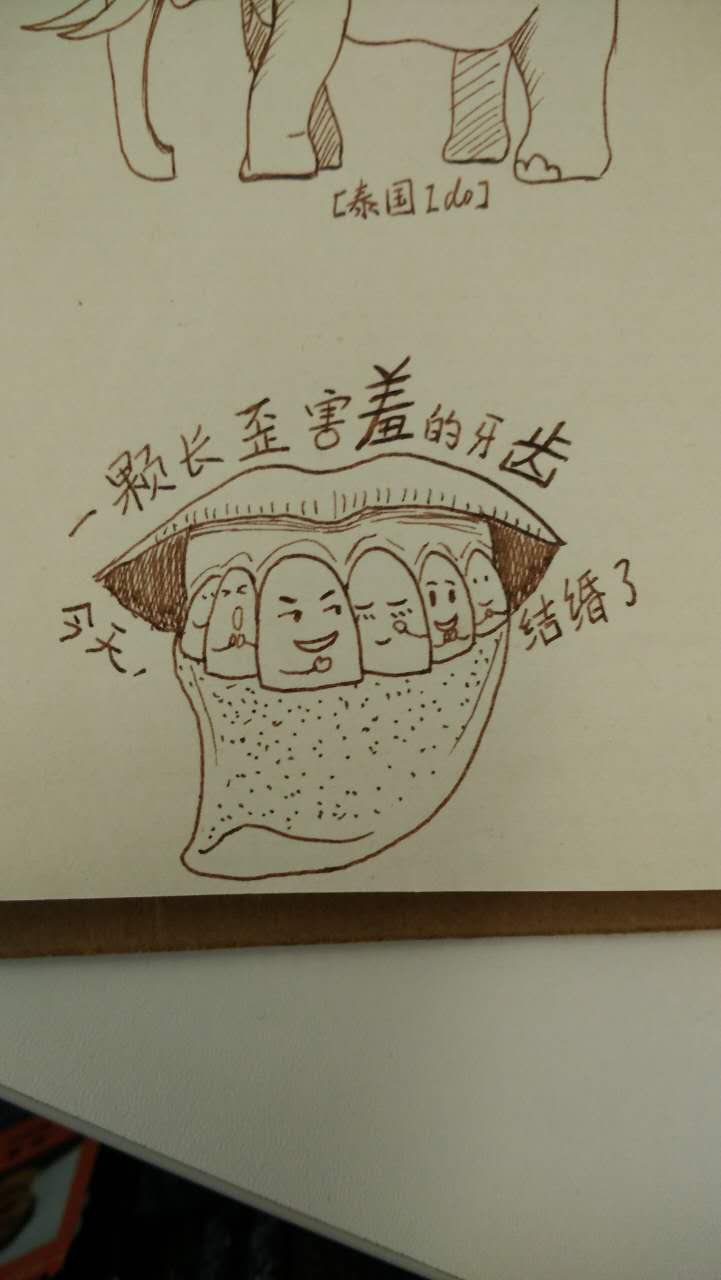 [泰国 I do]
一颗长歪害羞的牙齿
今天,
结婚了